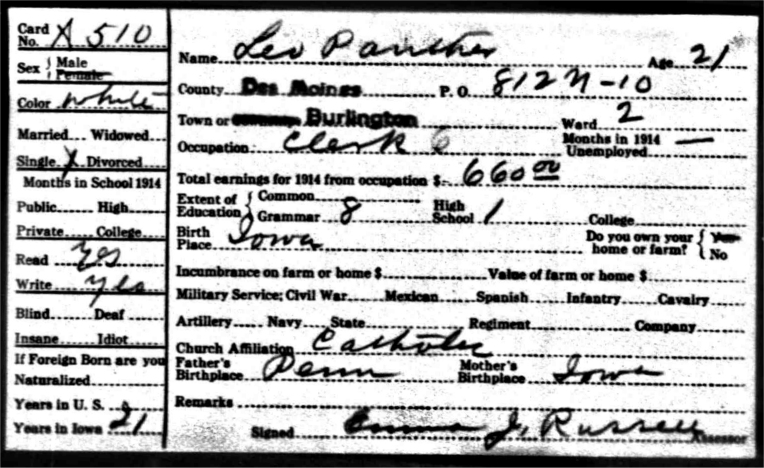 Card No. A 510
Sex { Male Female
Color White
Married Widowed
Single X Divorced
Months in School 1914
Public High
Private College
Read Yes
Write Yes
Blind Deaf
Insane Idiot
If Foreign Born are you
Naturalized
Years in U. S.
Years in Iowa 21
Name Leo Panther Age 21
County Des Moines P. O. 812 N-10
Town or Burlington Ward 2
Occupation Clerk 6 Months in 1914 Unemployed —
Total earnings for 1914 from occupation $ 660 00
Extent of Education { Common
Grammar 8 High School 1 College
Birth Place Iowa Do you own your home or farm? { Yes No
Incumbrance on farm or home $ Value of farm or home $
Military Service; Civil War Mexican Spanish Infantry Cavalry
Artillery Navy State Regiment Company
Church Affiliation Catholic
Father's Birthplace Penn Mother's Birthplace Iowa
Remarks
Signed Emma J. Russell Assessor